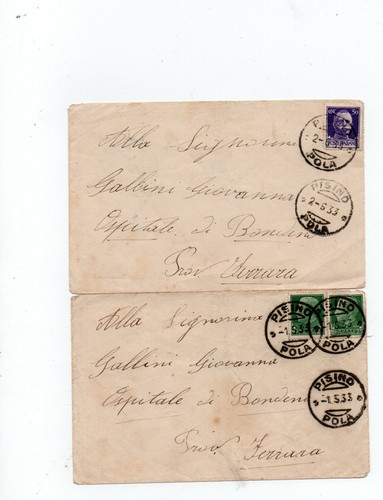 50
PISINO
2-
POLA
Alla Signorina
PISINO
2-6 33
POLA
Gallini Giovanna
Ospitale di Bondeno
Prov Ferrara
PISINO
-1.5.33
POLA
PISINO
-1.5.33
POLA
Alla Signorina
Gallini Giovanna
PISINO
-1.5.33
POLA
Ospitale di Bondeno
Prov Ferrara